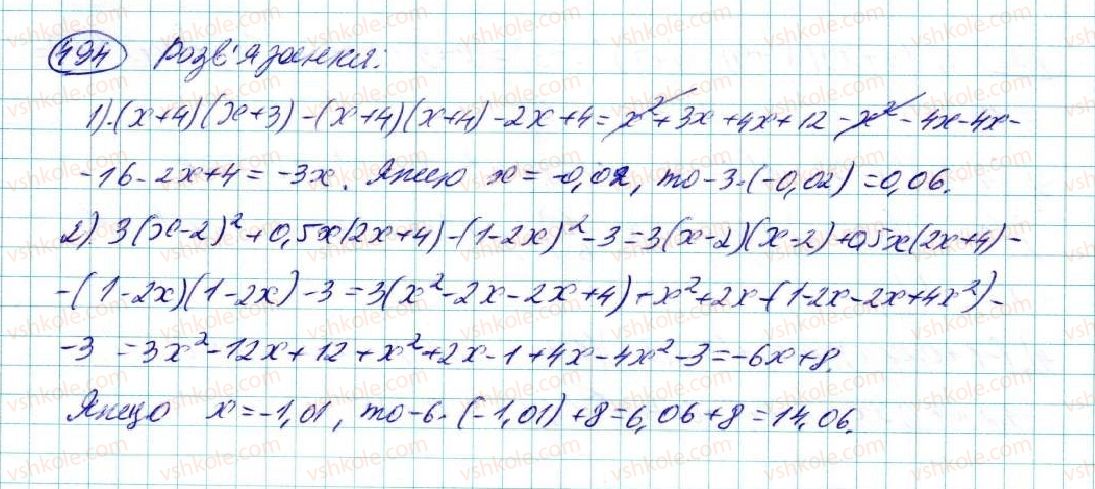 494 Розв'язання:
1) (x+4)(x+3)-(x+4)(x+4)-2x+4 = x²+3x+4x+12-x²-4x-4x-
-16-2x+4 = -3x. Якщо x = -0,02, то -3·(-0,02) = 0,06.
2) 3(x-2)²+0,5x(2x+4)-(1-2x)²-3 = 3(x-2)(x-2)+0,5x(2x+4)-
-(1-2x)(1-2x)-3 = 3(x²-2x-2x+4)+x²+2x-(1-2x-2x+4x²)-
-3 = 3x²-12x+12+x²+2x-1+4x-4x²-3 = -6x+8.
Якщо x = -1,01, то -6·(-1,01)+8 = 6,06+8 = 14,06.
vshkole.com